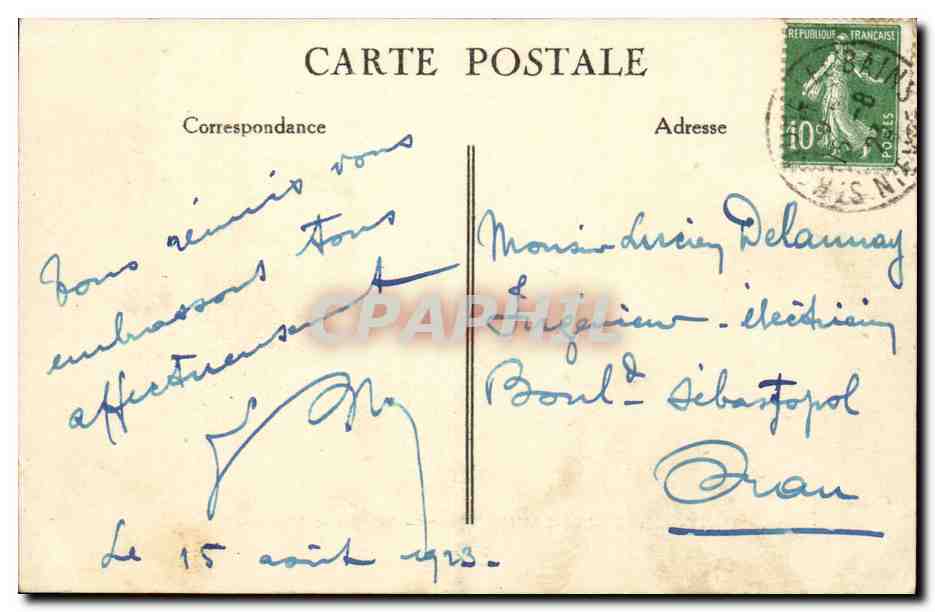 CARTE POSTALE
Correspondance
Adresse
RÉPUBLIQUE FRANÇAISE
10c
POSTES
BAINS
Tous réunis vous
embrassons tous
affectueusement
Le 15 août 1923.
Monsieur Lucien Delaunay
Ingénieur-électricien
Boul^d Sébastopol
Oran
CPAPHIL